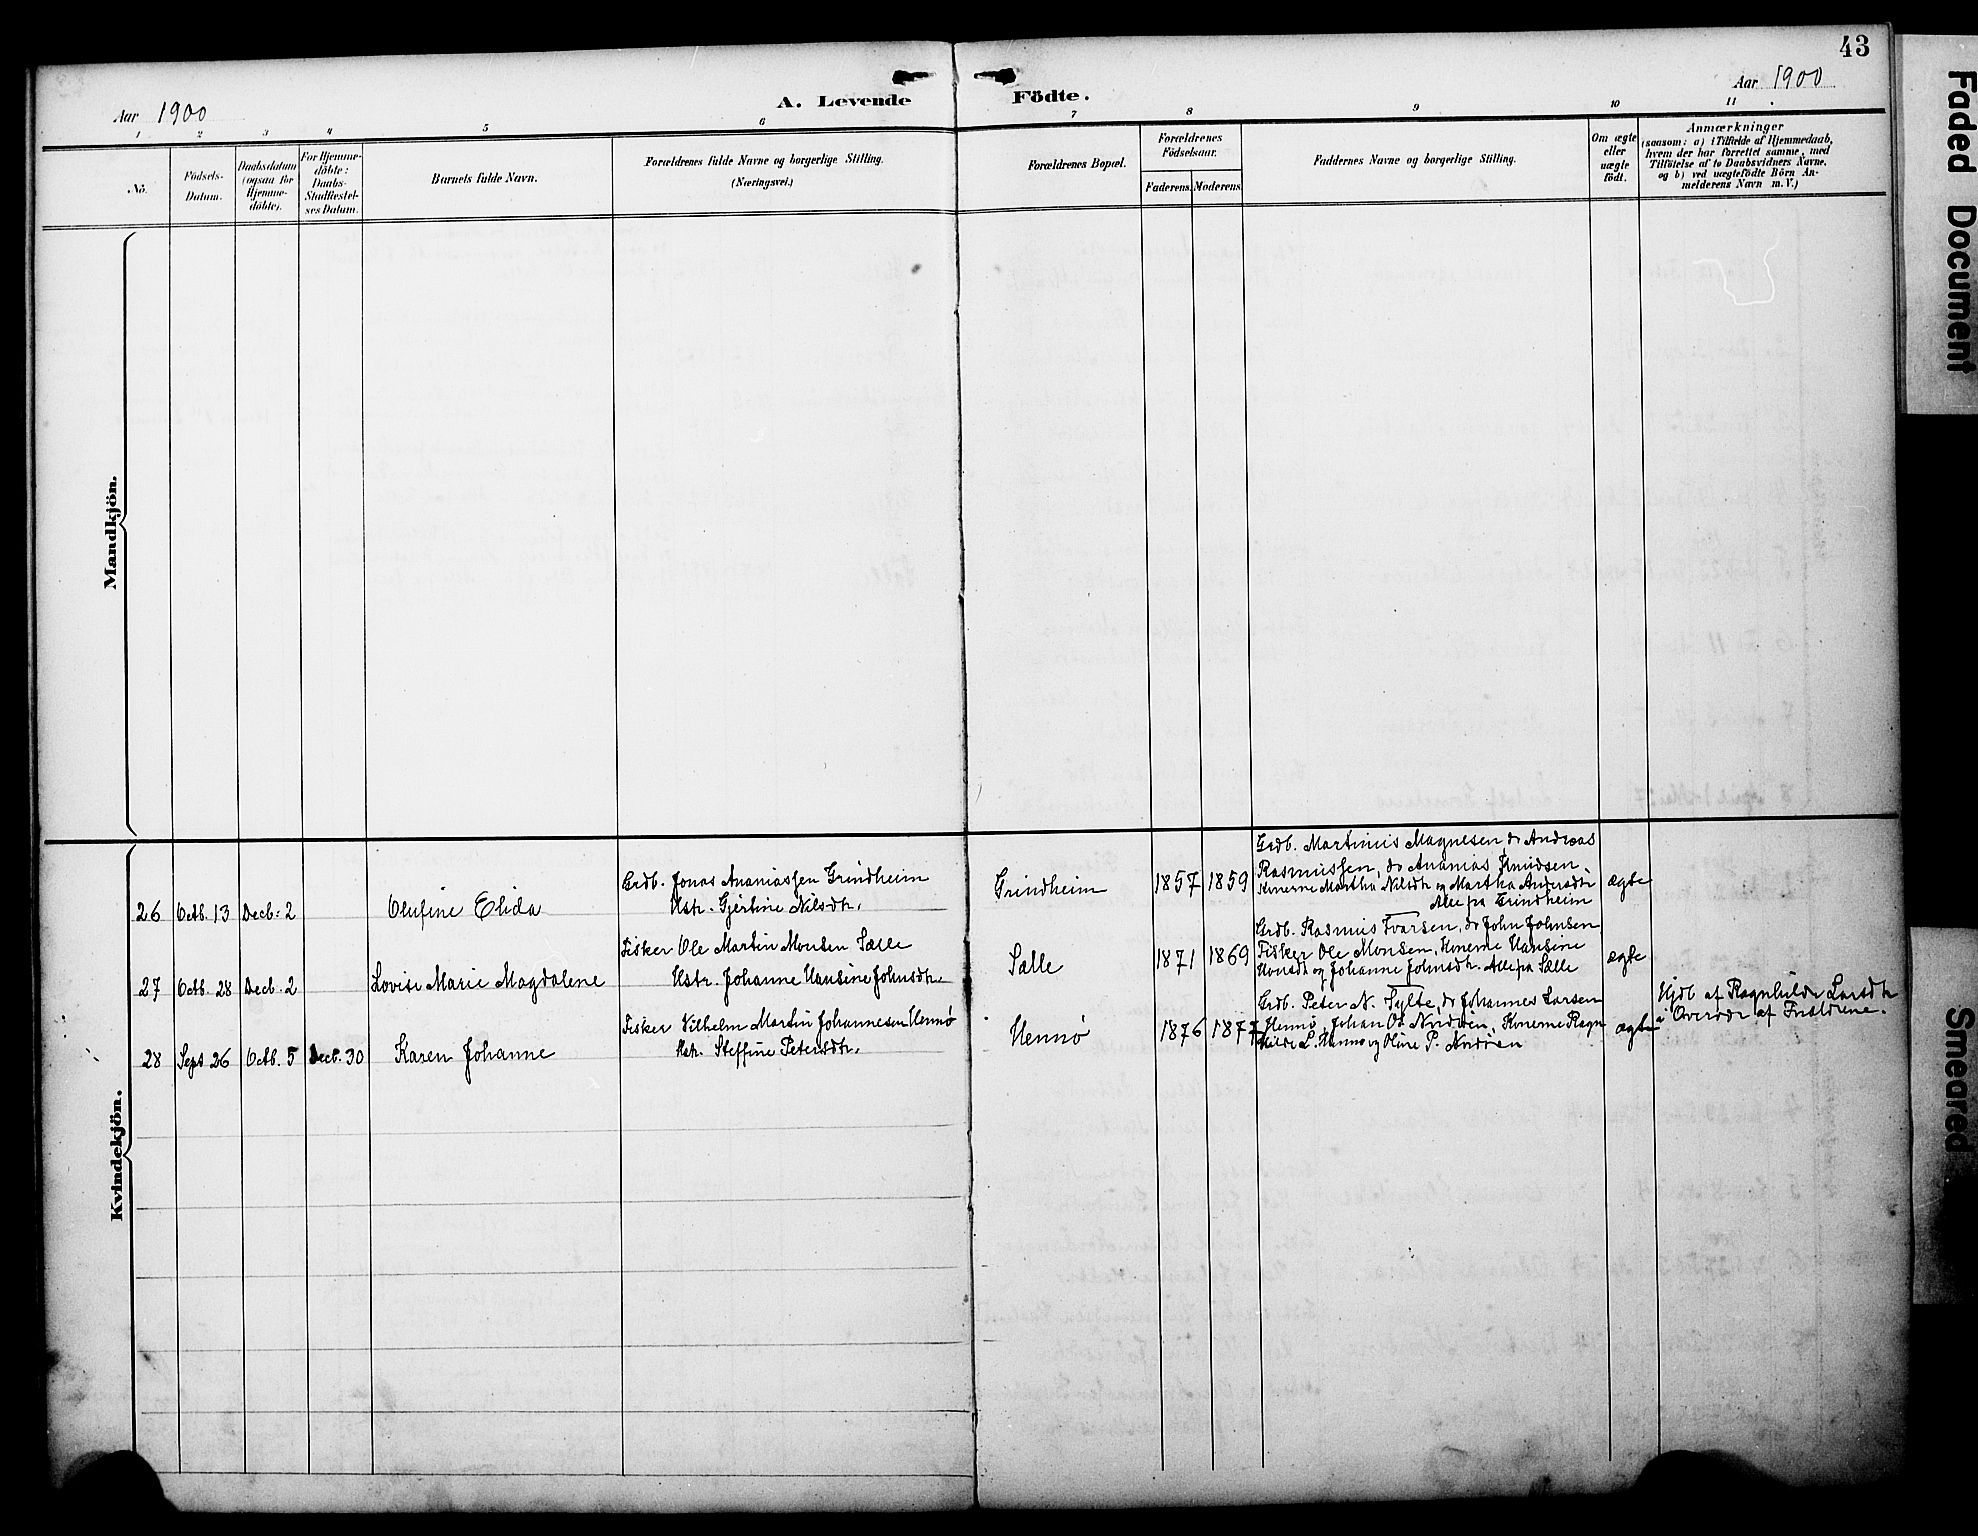 43
Aar 1900
A. Levende Födte.
Aar 1900
1 2 3 4 5 6 7 8 9 10 11
No.
Födsels-
Datum.
Daabsdatum
(ogsaa for
Hjemme-
döbte).
For Hjemme-
döbte:
Daabs-
Stadfæstel-
ses Datum.
Barnets fulde Navn.
Forældrenes fulde Navne og borgerlige Stilling.
(Næringsvei.)
Forældrenes Bopæl.
Forældrenes
Födselsaar.
Faderens. Moderens.
Faddernes Navne og borgerlige Stilling.
Om ægte
eller
uægte
födt.
Anmærkninger
(saasom: a) i Tilfælde af Hjemmedaab,
hvem der har forrettet samme, med
Tilföielse af to Daabsvidners Navne,
og b) ved uægtefödte Börn An-
melderens Navn m.V.)
Mandkjön.
Kvindekjön.
26 Octb. 13 Decb. 2 Olufine Elida
Grdb. Jonas Ananiassen Grindheim
Hstr. Gjertine Nilsdtr.
Grindheim 1857 1859
Grdb. Martinus Magnesen, do Andreas
Rasmussen, do Ananias Knudsen,
Konerne Martha Nilsdtr og Martha Andersdtr
Alle fra Grindheim
ægte
27 Octb. 28 Decb. 2 Lovise Marie Magdalene
Fisker Ole Martin Monsen Sælle
Hstr. Johanne Hansine Johnsdtr.
Sælle 1871 1869
Grdb. Rasmus Ivarsen, do John Johnsen
Fisker Ole Monsen, Konerne Hansine
Monsdtr og Johanne Johnsdtr. Alle fra Sælle
ægte
28 Sept 26 Octb. 5 Decb. 30 Karen Johanne
Fisker Vilhelm Martin Johannesen Hennø
Hstr. Steffine Petersdtr.
Hennø 1876 1877
Grdb. Peter N. Sylte, do Johannes Larsen
Hennø, Johan Ol. Nordøen, Konerne Ragn
hilde L. Hennø og Oline P. Nordøen
ægte
Hjdb af Ragnhilde Larsdtr
Overvær af Forældrene.
Faded Document
Smeared